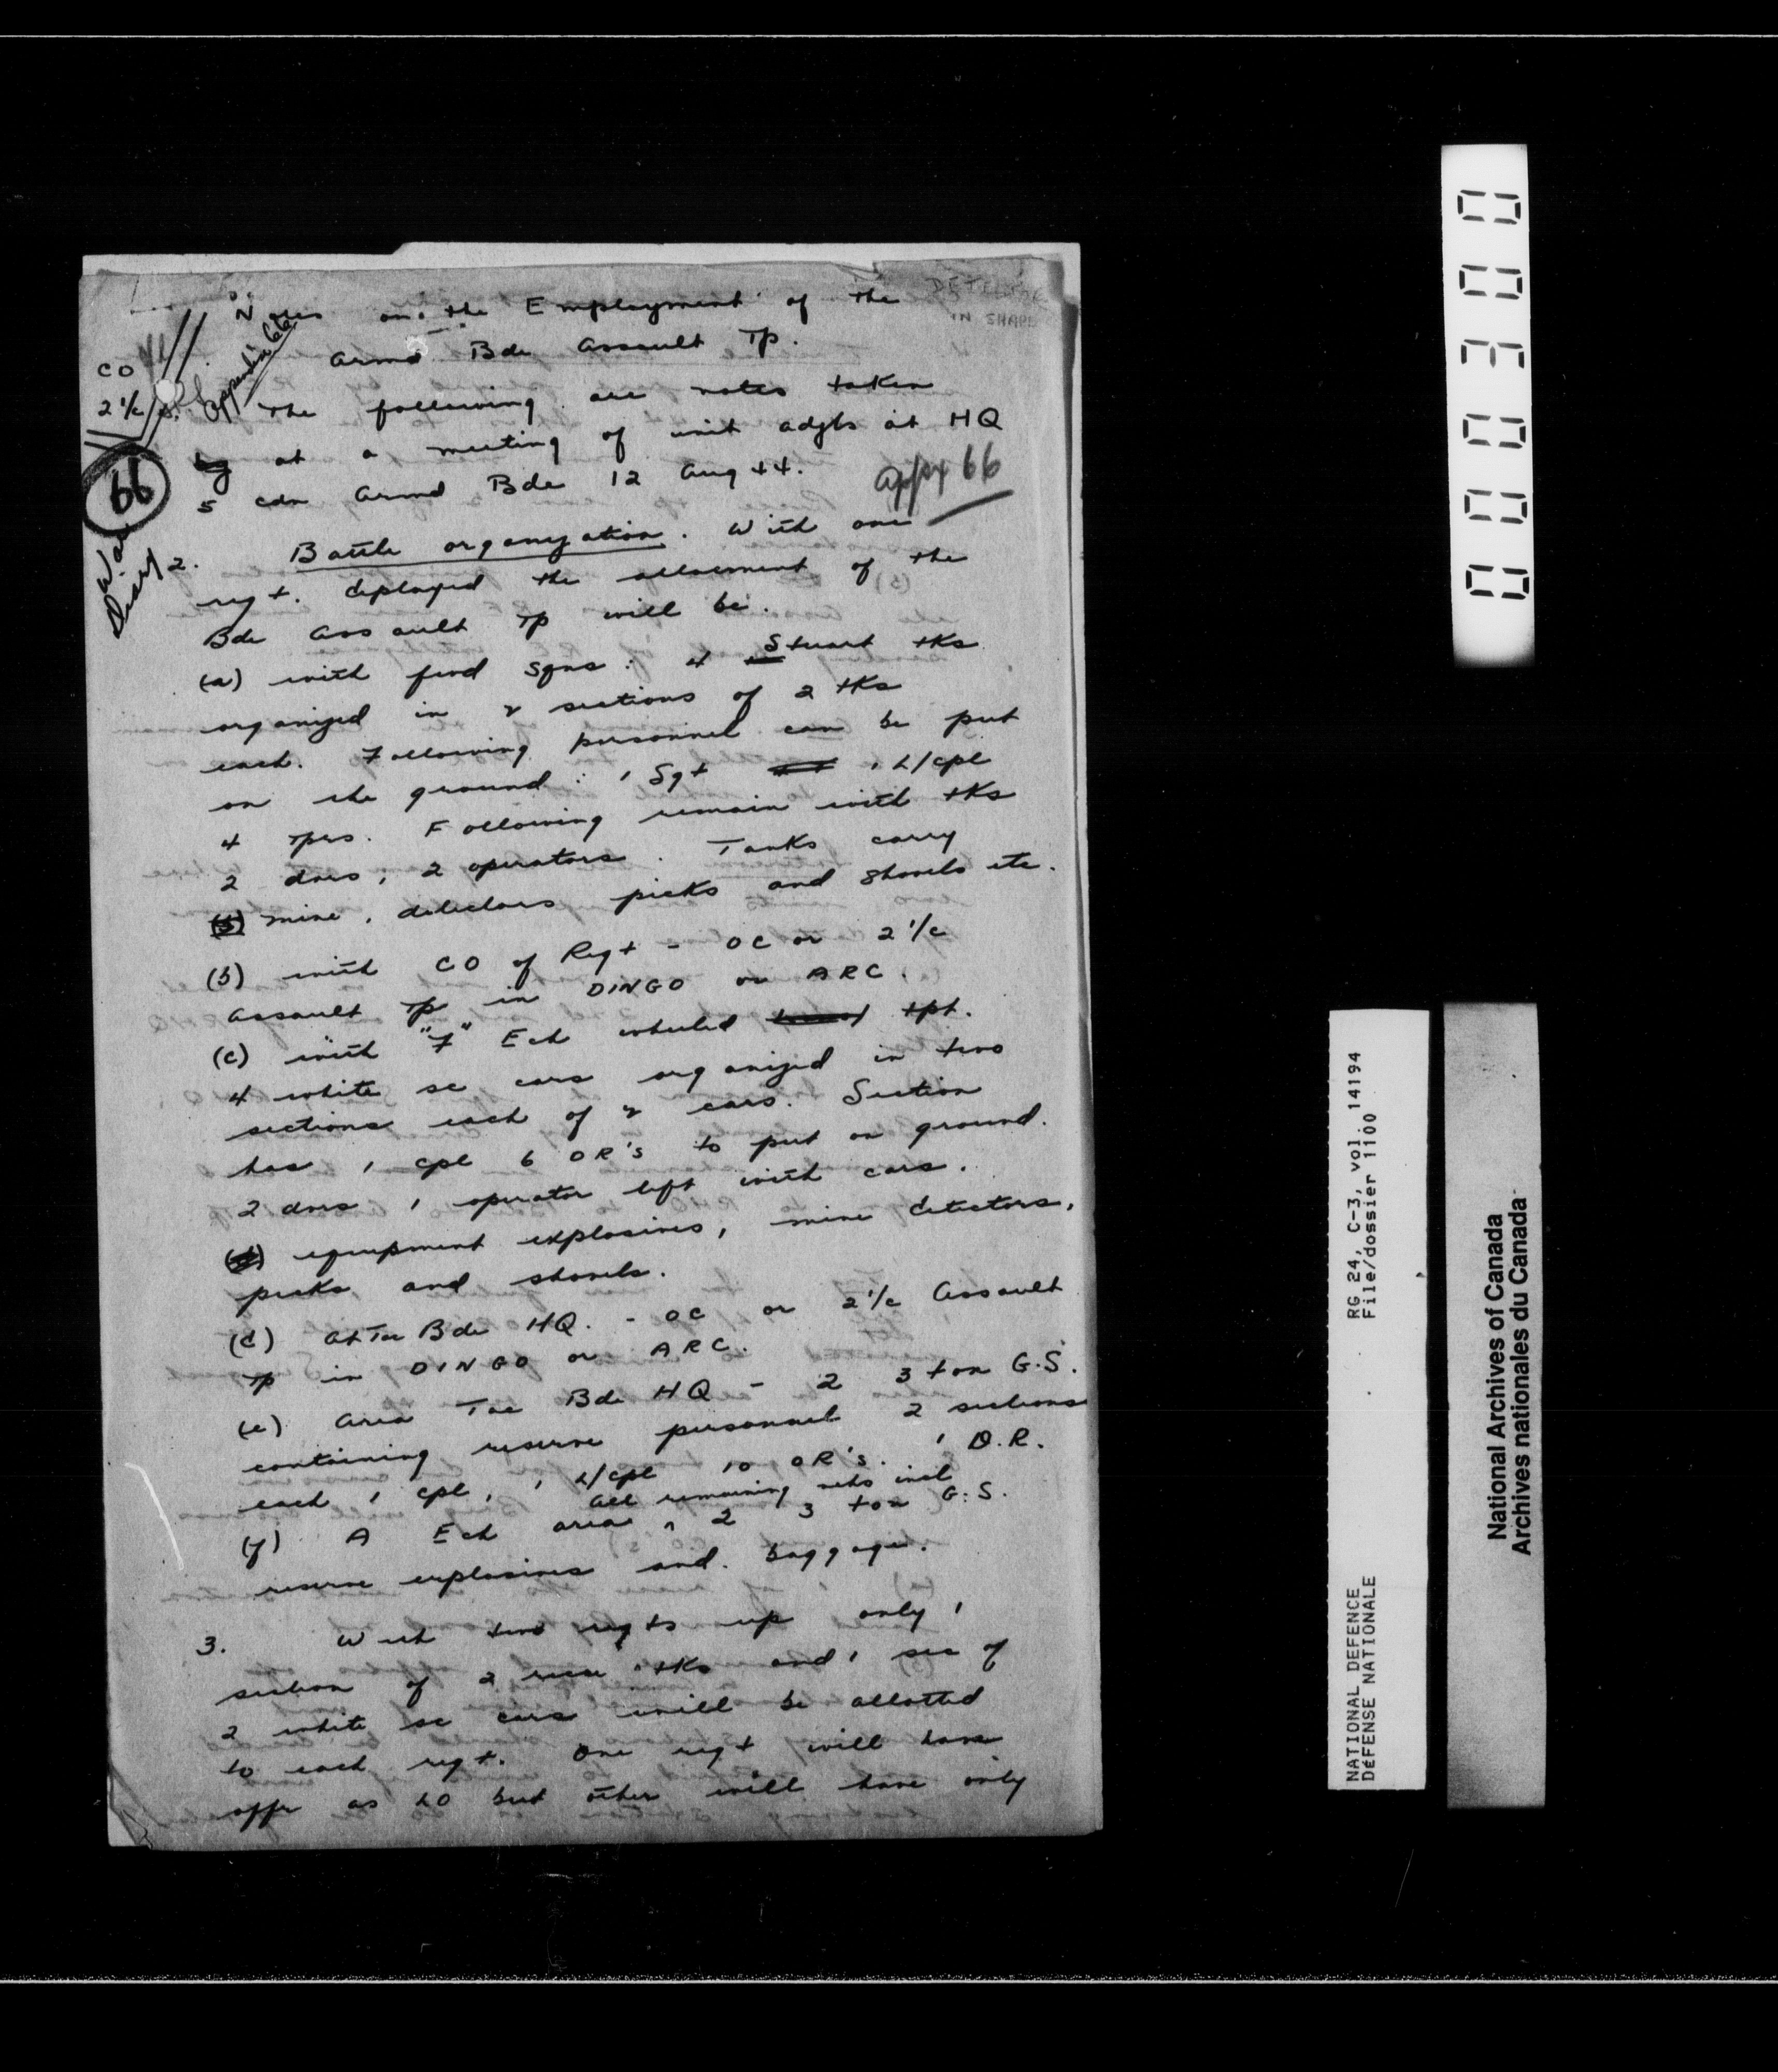 Notes on the Employment of the
Armd Bde Assault Tp.
CO
2 i/c
Appendix 66
66
War
Diary
The following are notes taken
by at a meeting of unit adjts at HQ
5 Cdn Armd Bde 12 Aug 44.
Appx 66
2. Battle organization. With one
regt. deployed the allocment of the
Bde Assault Tp will be.
(a) with fwd Sqns: 4 Stuart tks
organized in 2 sections of 2 tks
each. Following personnel can be put
on the ground: 1 Sgt 1 L/Cpl
4 Tprs. Following remain with tks
2 dvrs, 2 operators. Tanks carry
mine, detectors picks and shovels etc.
(b) with CO of Regt - OC or 2 i/c
Assault Tp in DINGO or ARC.
(c) with "F" Ech wheeled tpt.
4 white sc cars organized in two
sections each of 2 cars. Section
has 1 Cpl 6 OR's to put on ground.
2 dvrs 1 operator left with cars.
equipment explosives, mine detectors,
picks and shovels.
(d) At Tac Bde HQ. - OC or 2 i/c Assault
Tp in DINGO or ARC.
(e) Area Tac Bde HQ - 2 3 ton G.S.
containing reserve personnel 2 sections
each 1 Cpl, 1 L/Cpl 10 OR's. 1 D.R.
All remaining vehs incl
(f) A Ech area 2 3 ton G.S.
reserve explosives and baggage.
3. With two regts up only 1
section of 2 recce tks and 1 sec of
2 white sc cars will be allotted
to each regt. One regt will have
offr as LO but other will have only
DETERIORE
IN SHAPE
000300
RG 24, C-3, vol. 14194
File/dossier 1100
NATIONAL DEFENCE
DÉFENSE NATIONALE
National Archives of Canada
Archives nationales du Canada